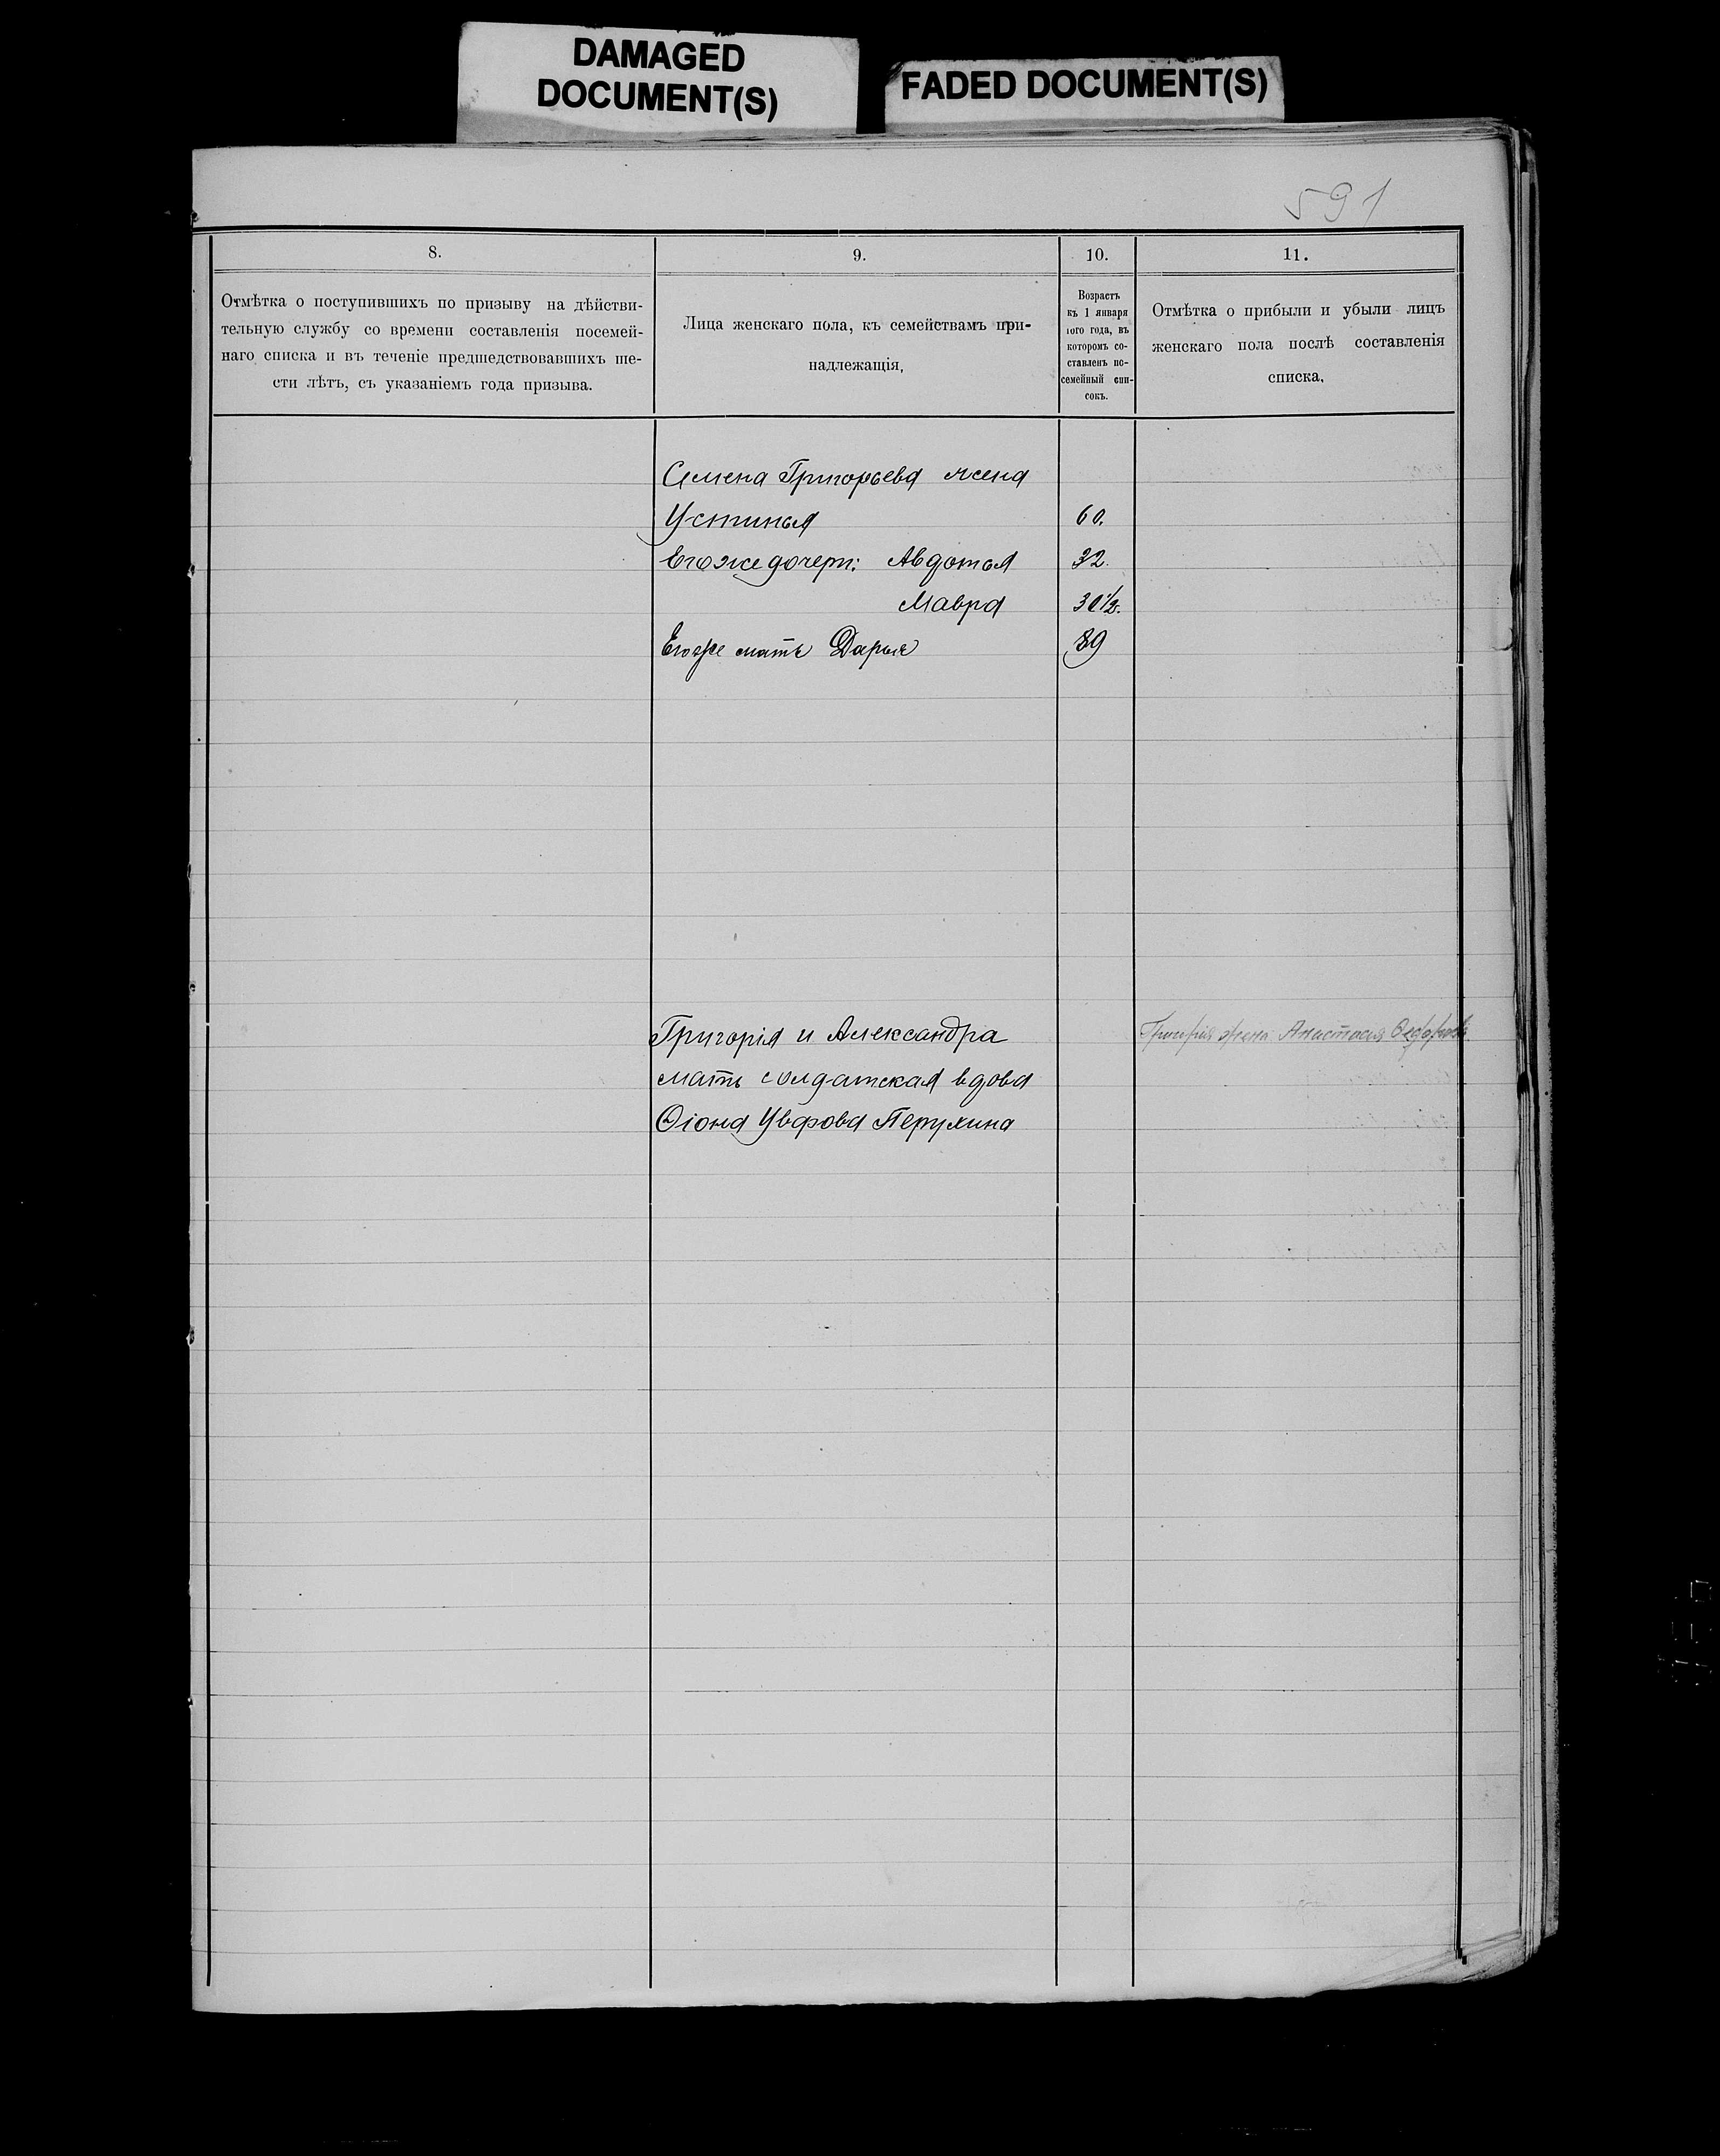 DAMAGED
DOCUMENT(S)
FADED DOCUMENT(S)
591
8.
9.
10.
11.
Отмѣтка о поступившихъ по призыву на дѣйстви-
тельную службу со времени составленія посемей-
наго списка и въ теченіе предшедствовавшихъ ше-
сти лѣтъ, съ указаніемъ года призыва.
Лица женскаго пола, къ семействамъ при-
надлежащія,
Возрастъ
къ 1 января
того года, въ
которомъ со-
ставленъ по-
семейный спи-
сокъ.
Отмѣтка о прибыли и убыли лицъ
женскаго пола послѣ составленія
списка.
Семена Григорьева жена
Устинья 60.
Его же дочери: Авдотья 32.
Мавра 30½.
Его же мать Дарья 89
Григорія и Александра
Григорія жена Анастасія
мать солдатская вдова
Ѳіона Уварова Перухина